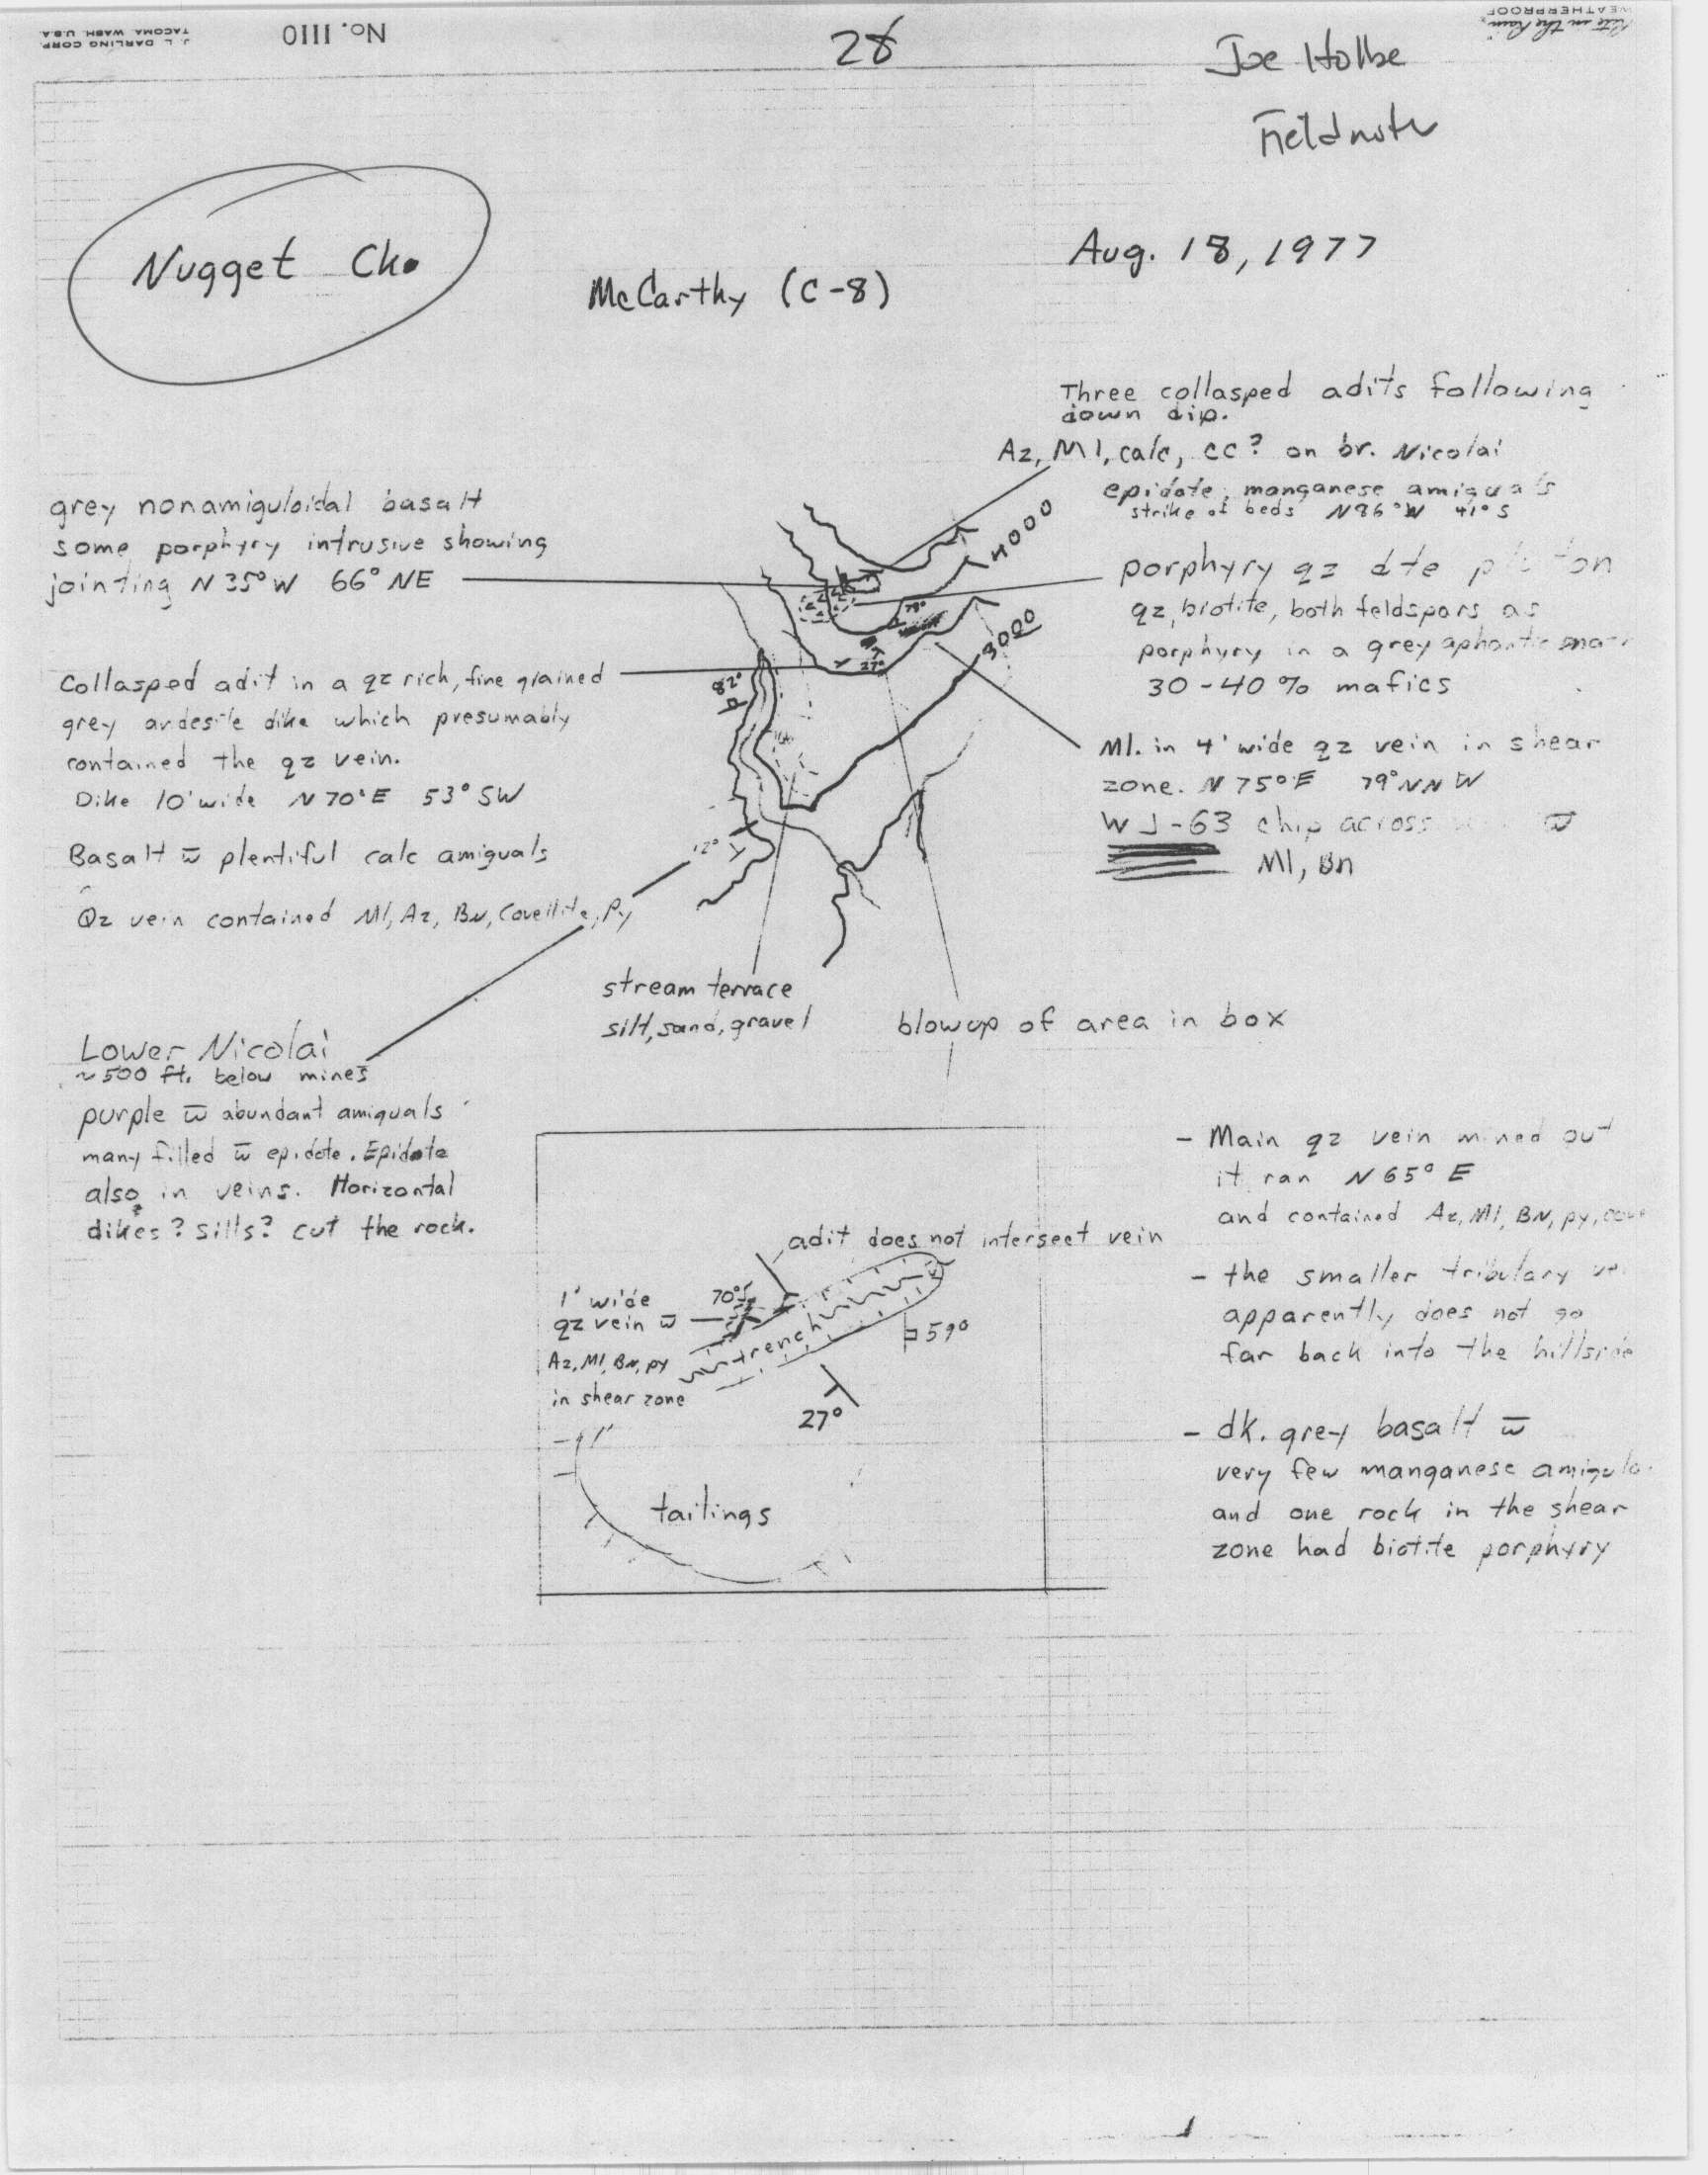 J. L. DARLING CORP
TACOMA, WASH. U.S.A.
No. 1110
28
Rite in the Rain
WEATHERPROOF
Joe Holbe
Fieldnote
Nugget Ck.
McCarthy (C-8)
Aug. 18, 1977
Three collasped adits following
down dip.
Az, Ml, calc, cc? on br. Nicolai
epidote, manganese amiguals
strike of beds N86°W 41°S
grey nonamiguloidal basalt
some porphyry intrusive showing
jointing N35°W 66° NE
porphyry qz dte
qz, biotite, both feldspars as
porphyry in a grey
30-40% mafics
4000
3000
79°
27°
82°
12°
Collasped adit in a qz rich, fine grained
grey andesite dike which presumably
contained the qz vein.
Dike 10' wide N70°E 53°SW
Basalt w̅ plentiful calc amiguals
Qz vein contained Ml, Az, Bn, Covellite, Py
Ml. in 4' wide qz vein in shear
zone. N75°E 79°NNW
WJ-63 chip across w̅
Ml, Bn
stream terrace
silt, sand, gravel
blowup of area in box
Lower Nicolai
~500 ft. below mines
purple w̅ abundant amiguals
many filled w̅ epidote. Epidote
also in veins. Horizontal
dikes? sills? cut the rock.
adit does not intersect vein
1' wide
qz vein w̅
Az, Ml, Bn, py
in shear zone
70°
trench
59°
27°
tailings
- Main qz vein mined out
it ran N65°E
and contained Az, Ml, BN, py,
- the smaller tributary
apparently does not go
far back into the hillside
- dk. grey basalt w̅
very few manganese
and one rock in the shear
zone had biotite porphyry